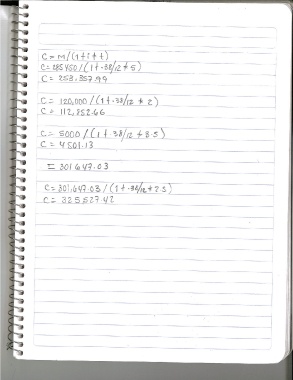 C = M/(1+i*t)
C= 285450/(1+.38/12 * 5)
C= 253,357.99
C= 120,000/(1+.38/12 * 2)
C= 112,852.66
C= 5000/(1+.38/12 * 3.5)
C= 4501.13
= 301647.03
C= 301,647.03/(1+.38/12 * 2.5)
C= 325527.42